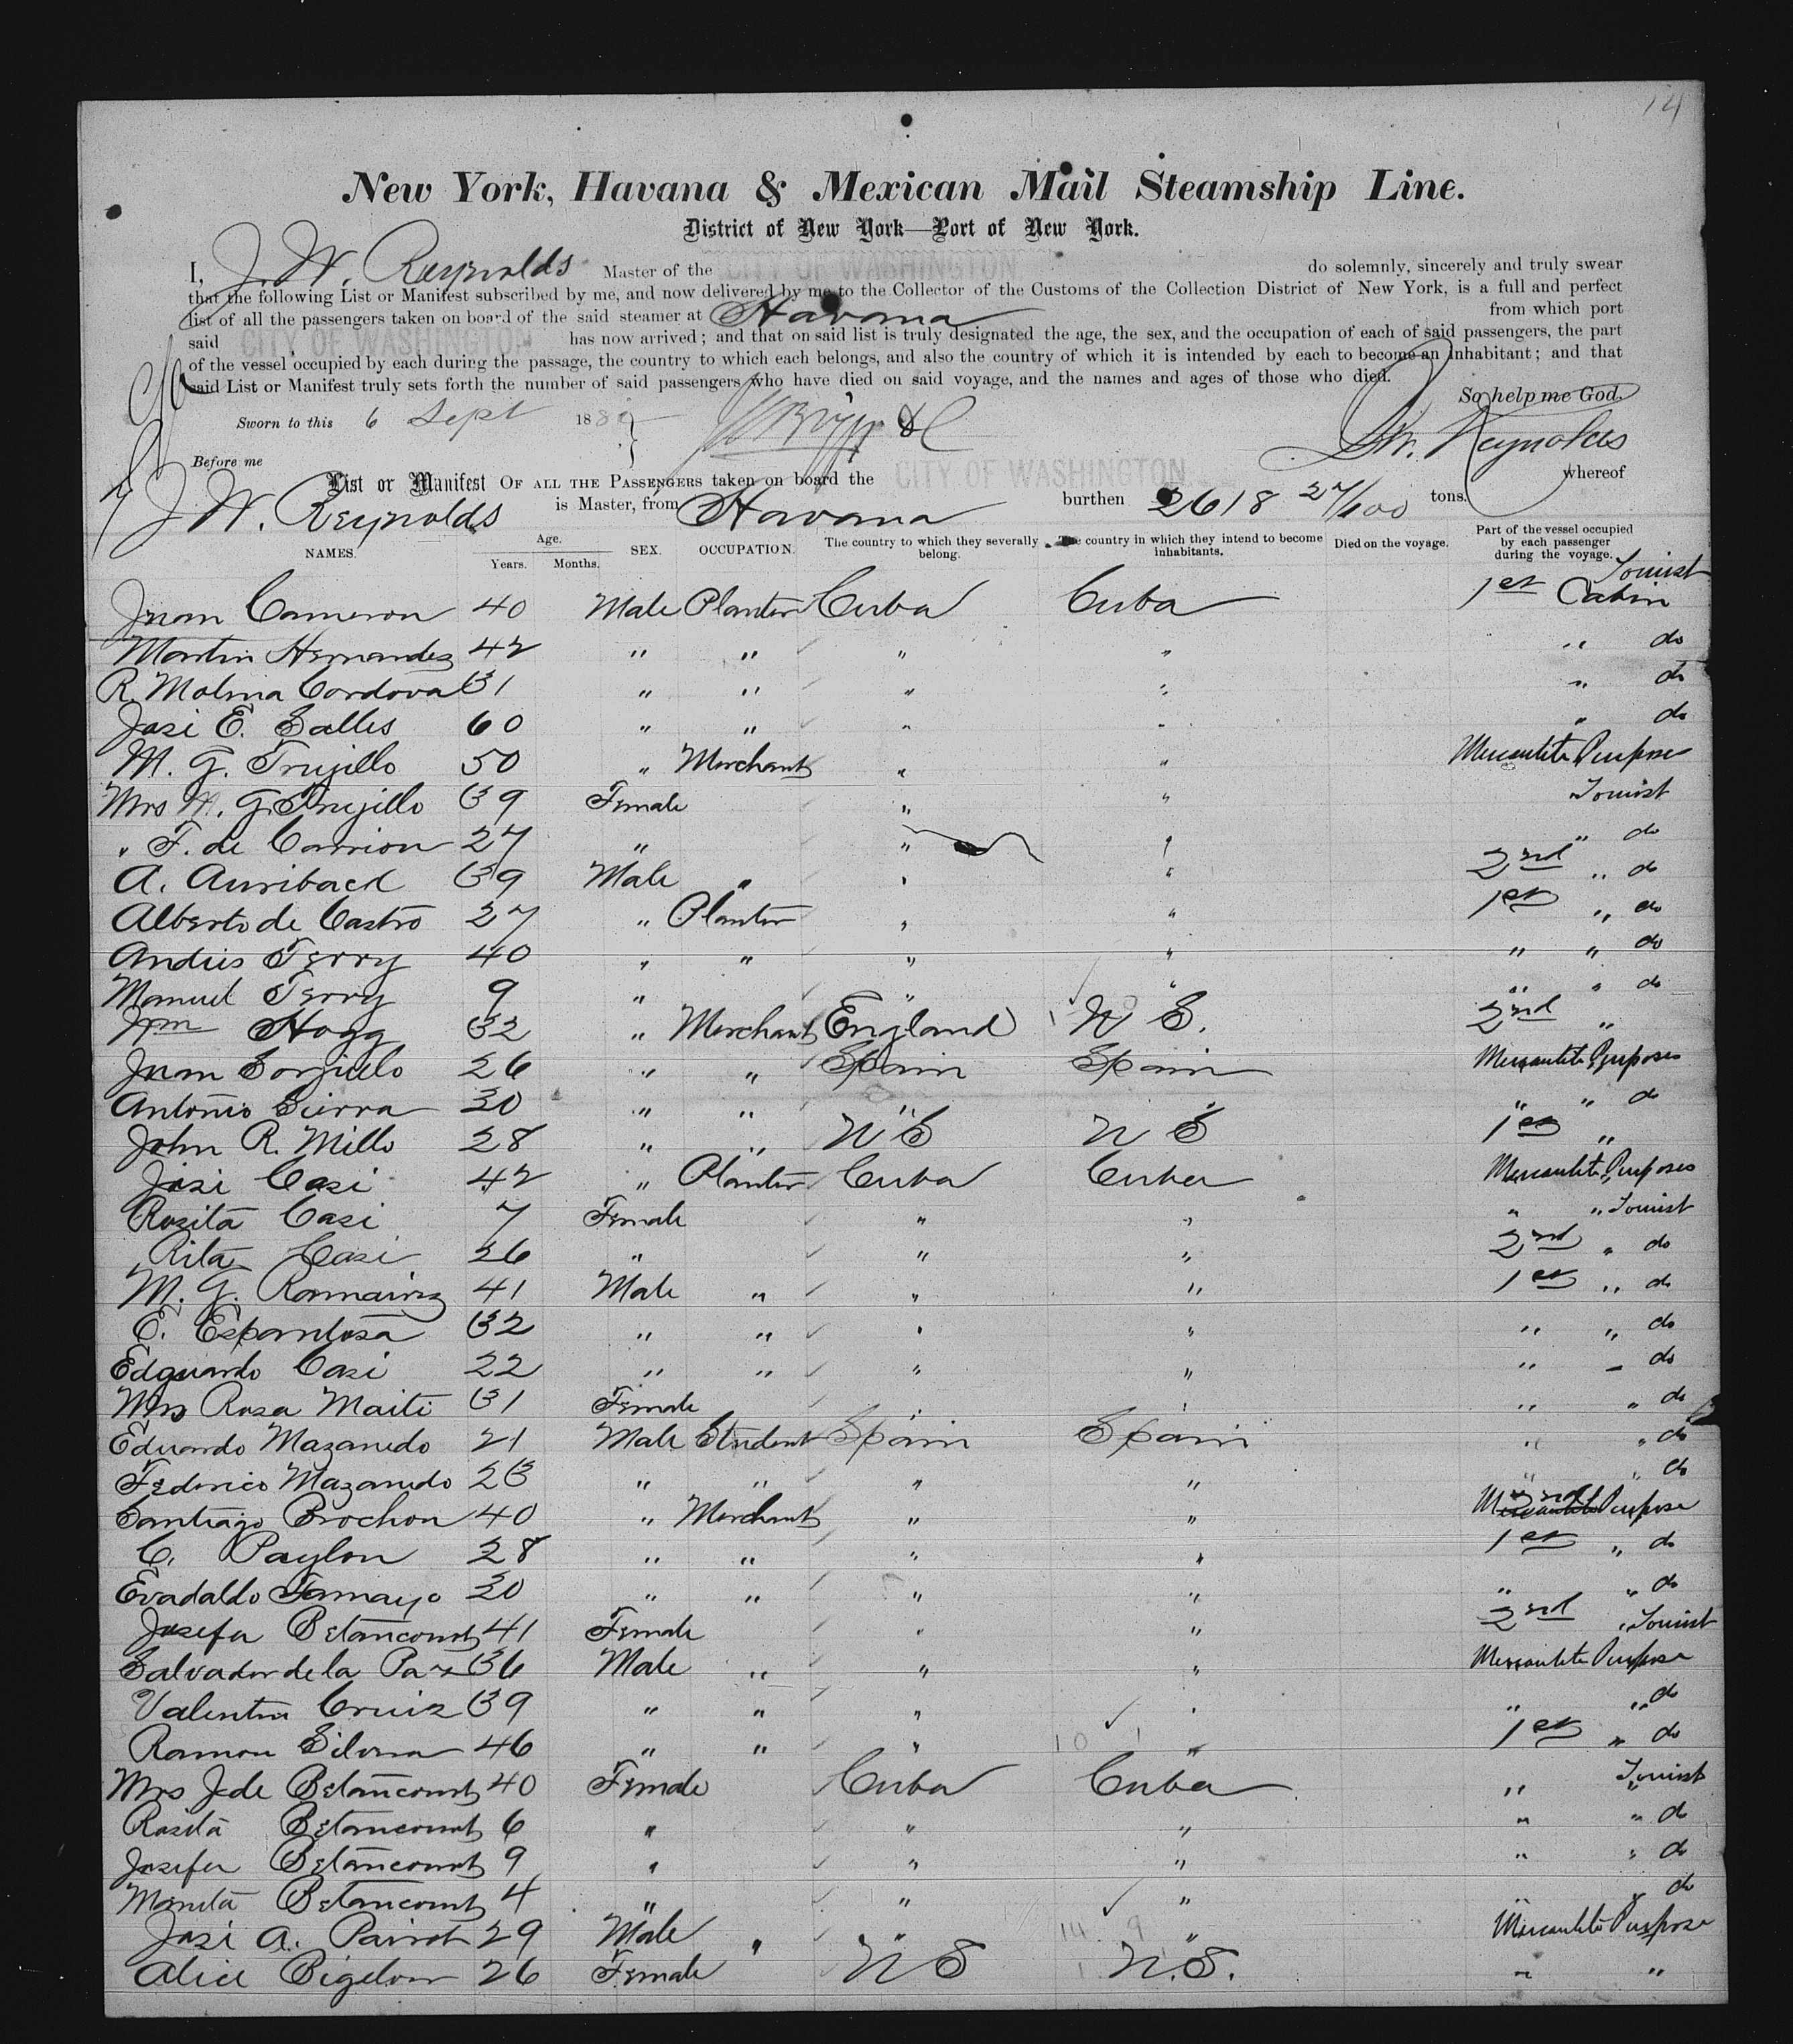 14
New York, Havana & Mexican Mail Steamship Line.
District of New York—Port of New York.
I, J. W. Reynolds Master of the CITY OF WASHINGTON do solemnly, sincerely and truly swear
that the following List or Manifest subscribed by me, and now delivered by me to the Collector of the Customs of the Collection District of New York, is a full and perfect
list of all the passengers taken on board of the said steamer at Havana from which port
said CITY OF WASHINGTON has now arrived; and that on said list is truly designated the age, the sex, and the occupation of each of said passengers, the part
of the vessel occupied by each during the passage, the country to which each belongs, and also the country of which it is intended by each to become an inhabitant; and that
said List or Manifest truly sets forth the number of said passengers who have died on said voyage, and the names and ages of those who died.
So help me God.
Sworn to this 6 Sept 188
J.W. Reynolds
Before me
List or Manifest OF ALL THE PASSENGERS taken on board the CITY OF WASHINGTON whereof
J W. Reynolds is Master, from Havana burthen 2618 27/100 tons.
NAMES. Age. Years. Months. SEX. OCCUPATION. The country to which they severally belong. The country in which they intend to become inhabitants. Died on the voyage. Part of the vessel occupied by each passenger during the voyage.
Juan Cameron 40 Male Planter Cuba Cuba 1st Cabin Tourist
Martin Hernandez 42 " " " " " do
R. Molina Cordova 31 " " " " " do
Jose E. Salles 60 " " " " " do
M. G. Trujillo 50 " Merchant " " Mercantile Purpose
Mrs M. G. Trujillo 39 Female " " Tourist
" F. de Carrion 27 " " " " do
A. Auriback 39 Male " " " 2nd " do
Alberto de Castro 27 " Planter " " 1st " do
Andres Terry 40 " " " " " " do
Manuel Terry 9 " " " " " do
Wm Hogg 32 " Merchant England U S. 2nd "
Juan Sorjuelo 26 " " Spain Spain Mercantile Purposes
Antonio Sierra 30 " " " " " " do
John R. Mills 28 " " U S U S 1st "
Jose Casi 42 " Planter Cuba Cuba Mercantile Purposes
Rosita Casi 7 Female " " " " Tourist
Rita Casi 26 " " " 2nd " do
M. G. Romainz 41 Male " " " 1st " do
E. Espantosa 32 " " " " " " do
Edguardo Casi 22 " " " " " " do
Mrs Rosa Maiti 31 Female " " " " do
Eduardo Mazaredo 21 Male Student Spain Spain " " do
Federico Mazaredo 23 " " " " " " do
Santiago Brochon 40 " Merchant " " 2nd Mercantile Purpose
C. Paylon 28 " " " " 1st " do
Evadaldo Tamayo 30 " " " " " " do
Josefa Betancourt 41 Female " " 2nd " Tourist
Salvador de la Paz 36 Male " " " Mercantile Purpose
Valentin Cruiz 39 " " " " " " do
Ramon Silvera 46 " " " " 1st " do
Mrs J de Betancourt 40 Female Cuba Cuba " " Tourist
Rosita Betancourt 6 " " " " " do
Josefa Betancourt 9 " " " " " do
Manita Betancourt 4 " " " " " do
Jose A. Parrot 29 Male " " " Mercantile Purpose
Alice Bigelow 26 Female U S U.S. " "